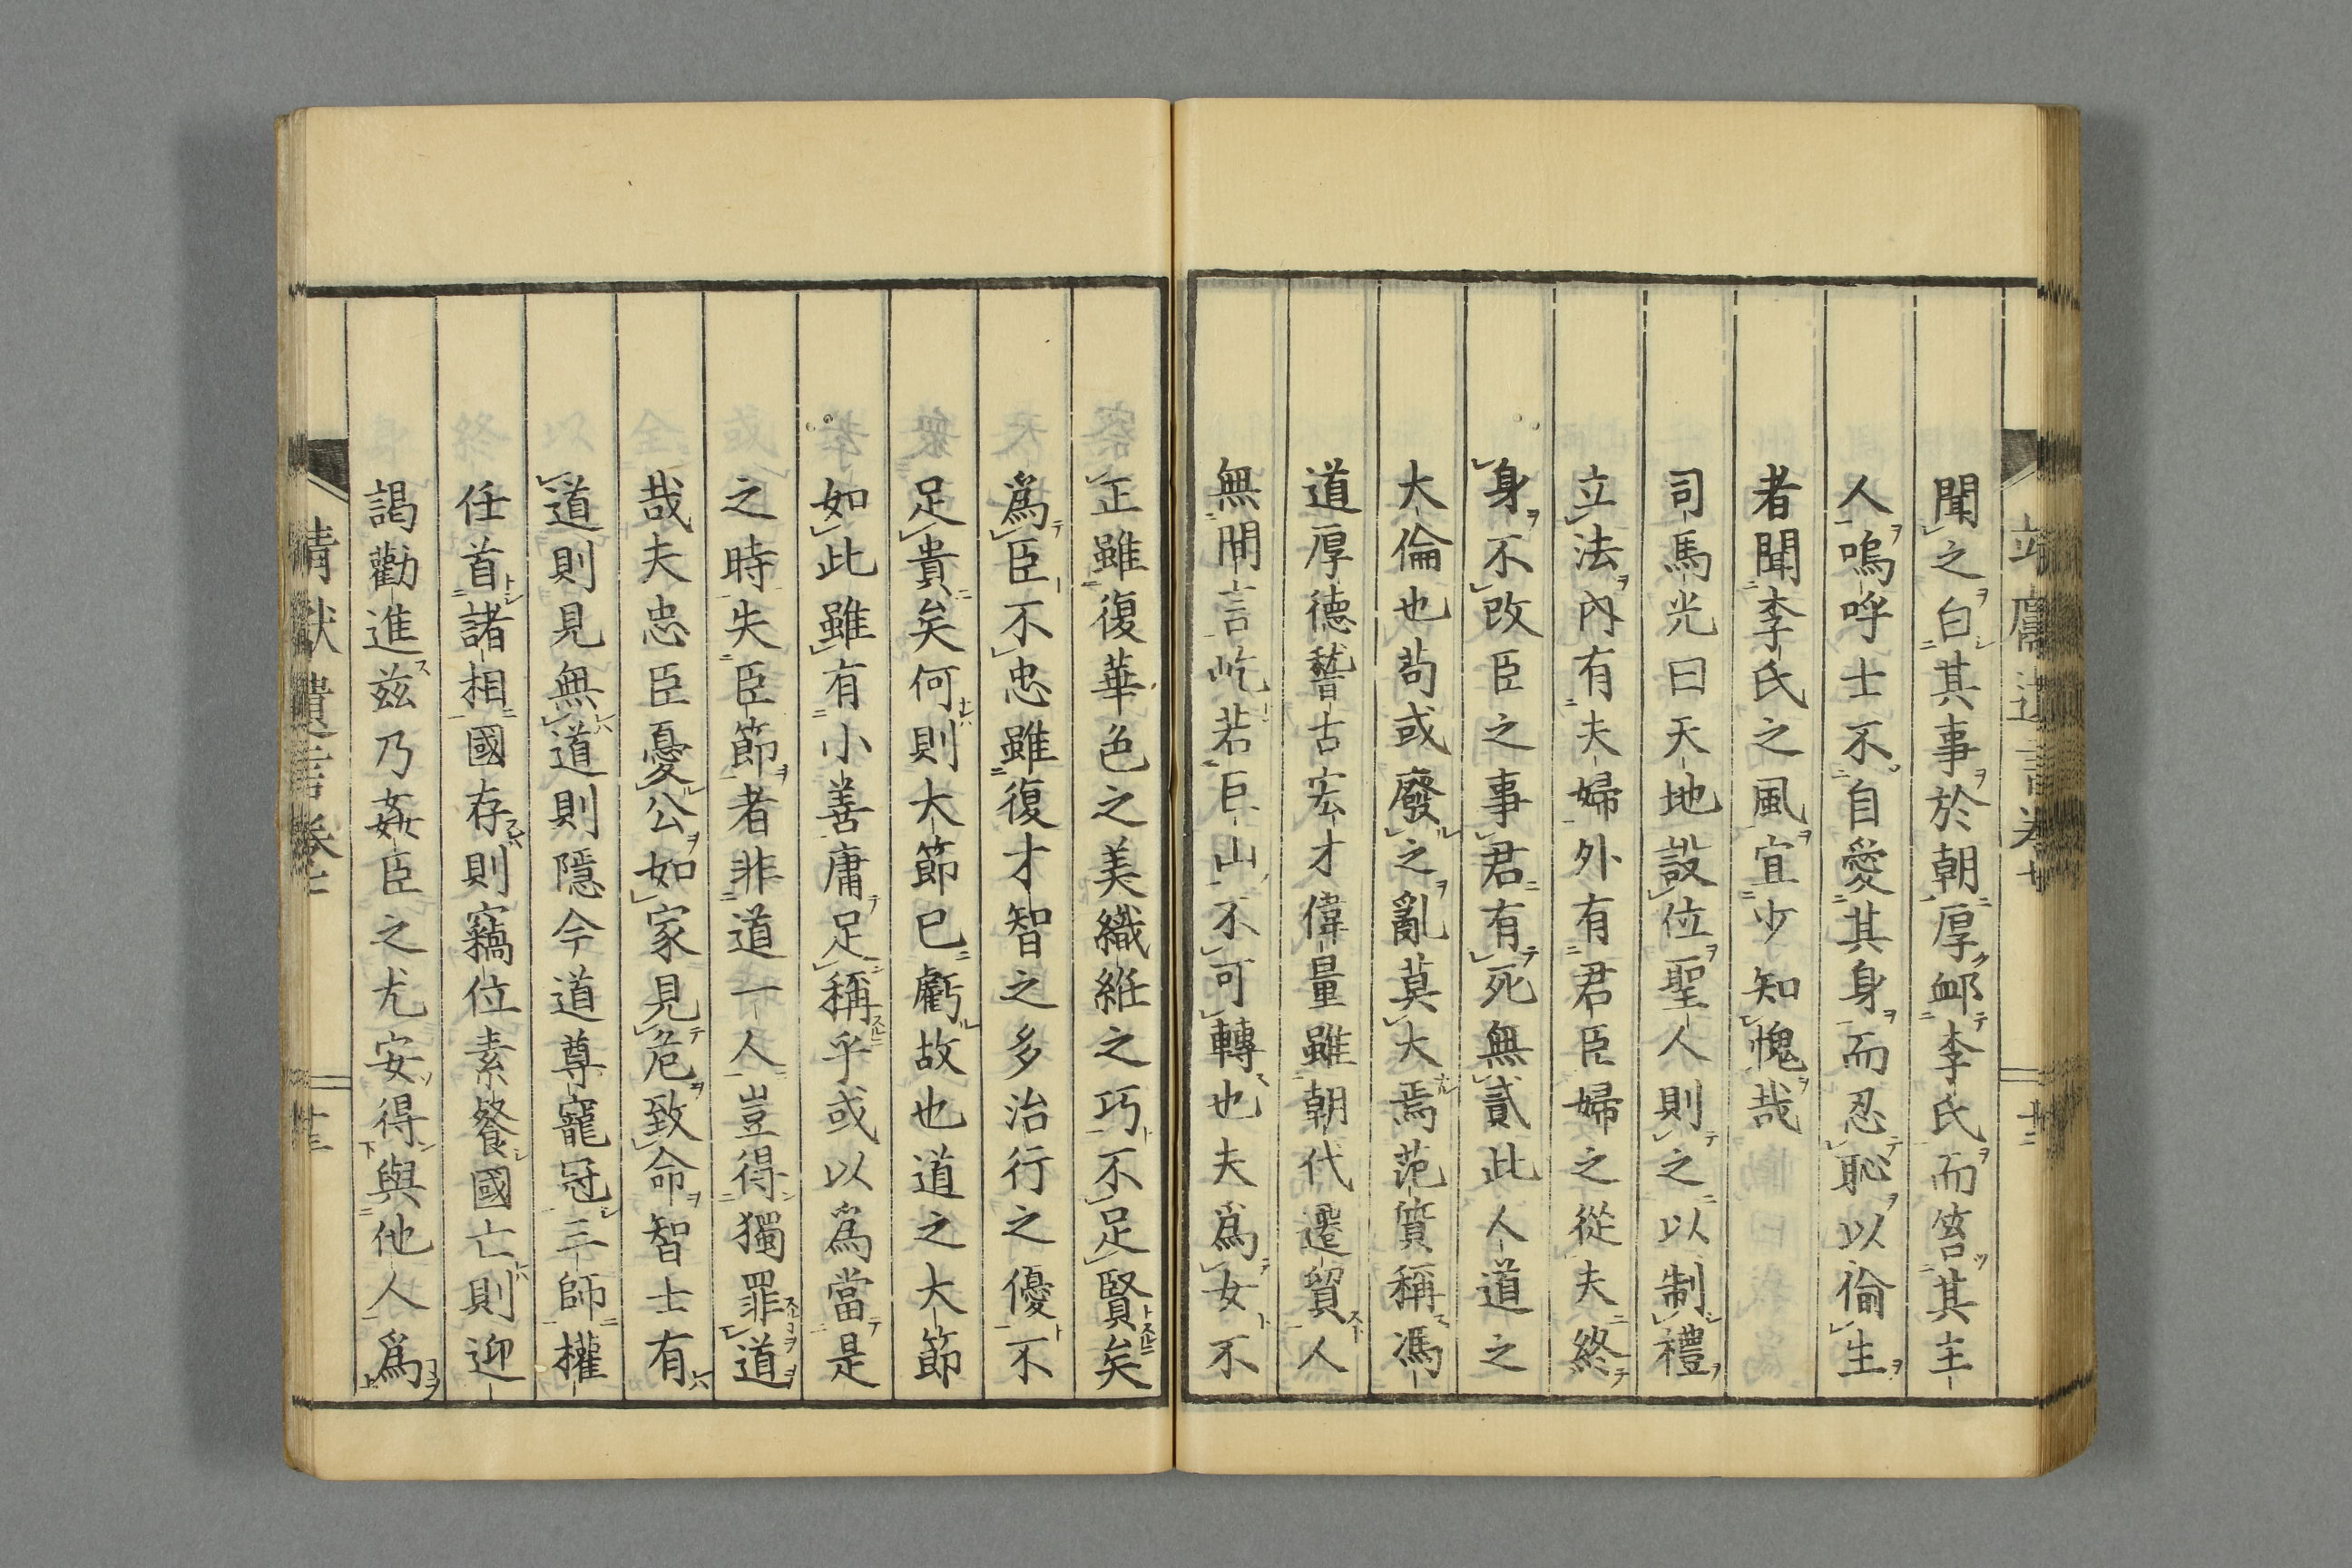 聞之白其事於朝厚卹李氏而笞其主
人嗚呼士不自愛其身而忍恥以偷生
者聞李氏之風宜少知愧哉
司馬光曰天地設位聖人則之以制禮
立法內有夫婦外有君臣婦之從夫終
身不改臣之事君有死無貳此人道之
大倫也苟或廢之亂莫大焉范質稱馮
道厚德稽古宏才偉量雖朝代遷貿人
無間言屹若巨山不可轉也夫爲女不
正雖復華色之美織維之巧不足賢矣
爲臣不忠雖復才智之多治行之優不
足貴矣何則大節已虧故也道之大節
如此雖有小善庸足稱乎或以爲當是
之時失臣節者非道一人豈得獨罪道
哉夫忠臣憂公如家見危致命智士有
道則見無道則隱今道尊寵冠三師權
任首諸相國存則竊位素餐國亡則迎
謁勸進茲乃姦臣之尤安得與他人爲
靖獻遺言卷七